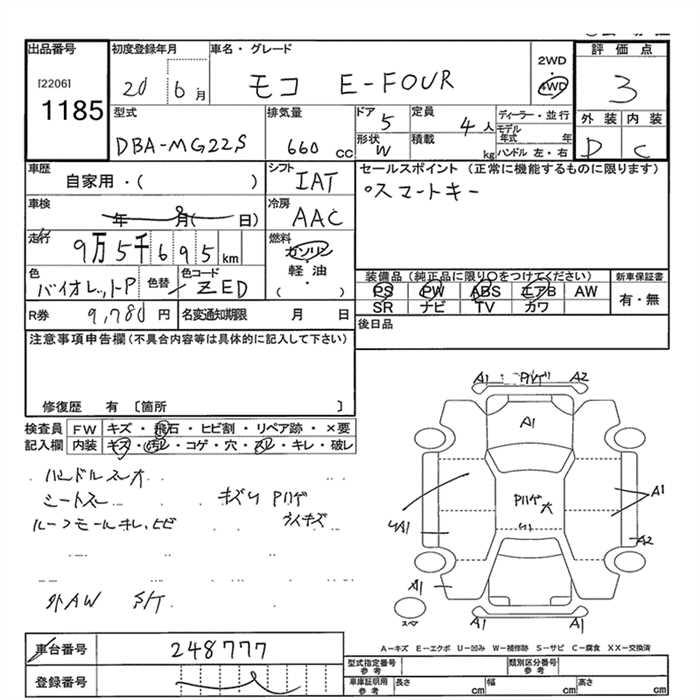 出品番号 初度登録年月 車名・グレード 2WD 評価点
[2206] 20 6月 モコ E-FOUR 4WD 3
1185
型式 排気量 ドア 定員 ディーラー・並行 外装 内装
DBA-MG22S 660 cc 5 4人 モデル年式 年 D C
形状 W 積載 kg ハンドル 左・右
車歴 シフト セールスポイント (正常に機能するものに限ります)
自家用・( ) IAT スマートキー
車検 冷房
年 月( 日) AAC
走行 燃料
9万5千695km ガソリン
軽油
( )
色 色替 色コード 装備品(純正品に限り○をつけてください) 新車保証書
バイオレットP ZED PS PW ABS エアB AW 有・無
SR ナビ TV カワ
R券 9,780円 名変通知期限 月 日 後日品
注意事項申告欄(不具合内容等は具体的に記入して下さい)
修復歴 有 〔箇所 〕
検査員 FW キズ・飛石・ヒビ割・リペア跡・×要
記入欄 内装 キズ・汚レ・コゲ・穴・スレ・キレ・破レ
ハンドルスレ大
シートスレ キズU Aハゲ
ルーフモールキレ、ヒビ
外AW
A1 ハゲ A2
A1
ハゲ大
A1
A1
A2
A1
スペア
A1 A1
A-キズ E-エクボ U-凹み W-補修跡 S-サビ C-腐食 XX-交換済
車台番号 248777
登録番号
型式指定番号 参考 類別区分番号 参考
車庫証明用 参考 長さ cm 幅 cm 高さ cm